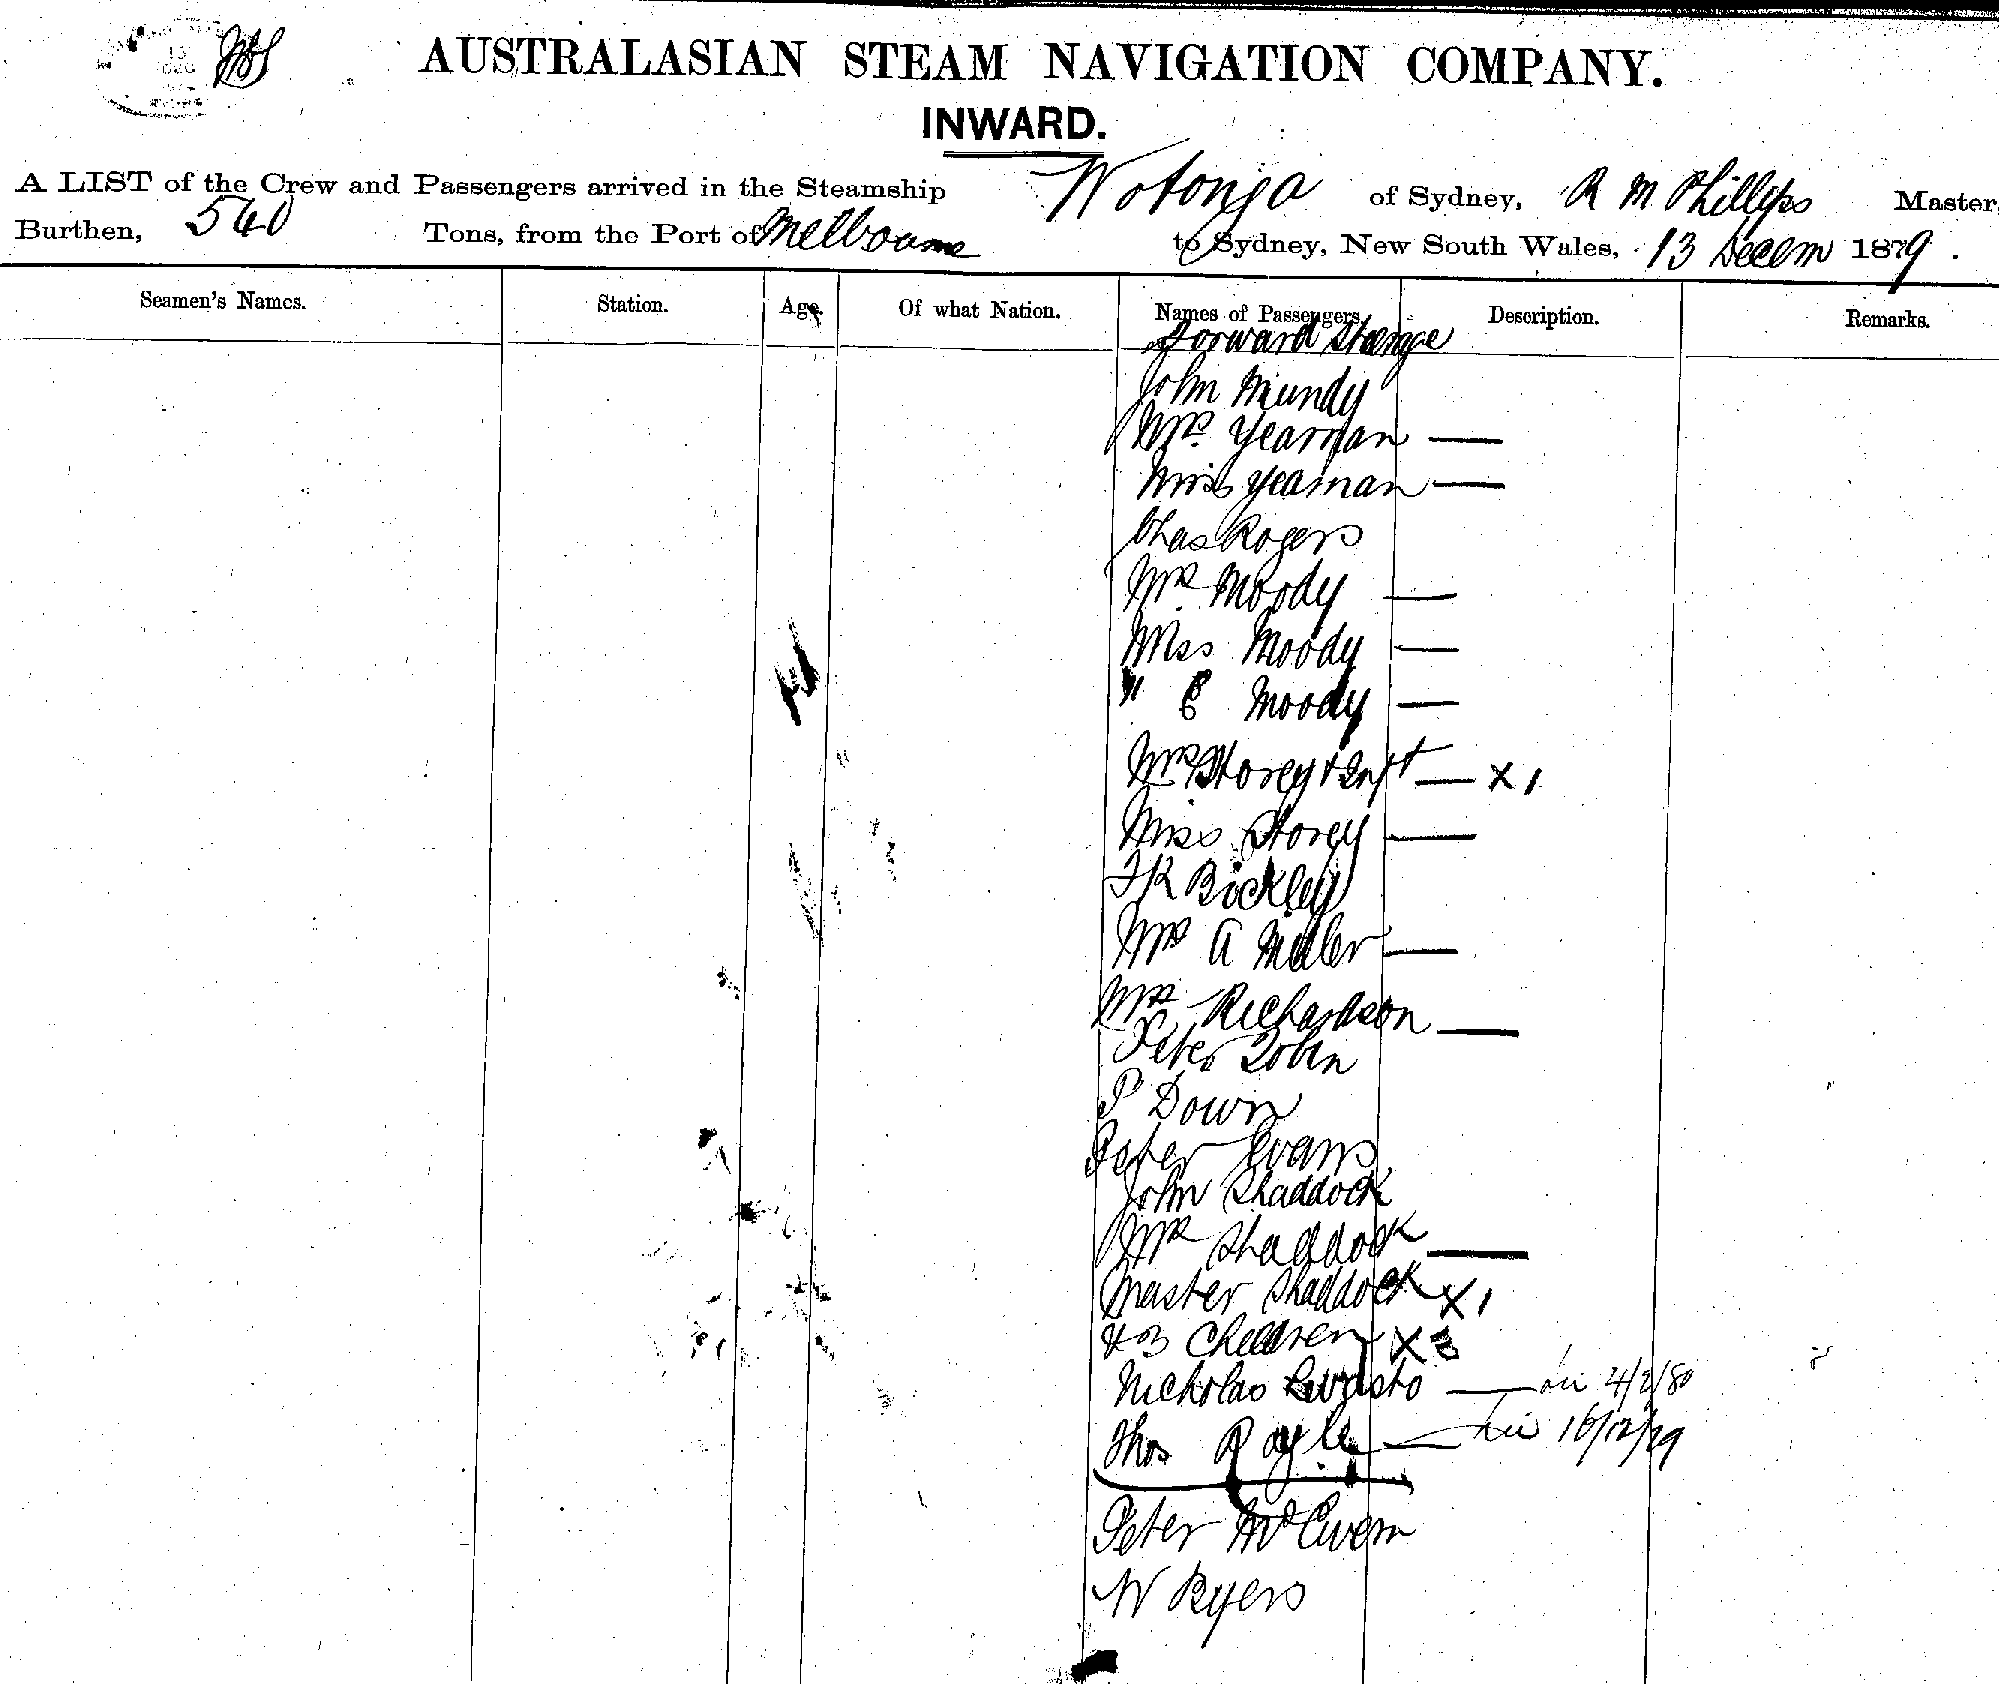 13
DEC
AUSTRALASIAN STEAM NAVIGATION COMPANY.
INWARD.
A LIST of the Crew and Passengers arrived in the Steamship Wotonga of Sydney, R M Phillips Master,
Burthen, 540 Tons, from the Port of Melbourne to Sydney, New South Wales, 13 Decem 1879.
Seamen's Names. Station. Age. Of what Nation. Names of Passengers. Description. Remarks.
Forward Steerage
John Mundy
Mrs Yeaman —
Miss Yeaman —
Chas Rogers
Mrs Moody —
Miss Moody —
" E Moody —
Mrs Storey + Inft — X 1
Miss Storey —
Bickley
Mrs A Miller —
Mrs Richardson —
Peter Tobin
P Down
Peter Evans
John Shaddock
Mrs Shaddock —
Master Shaddock X 1
+ 3 Children X 3
Nicholas — 4/2/80
Thos Royle — 16/12/79
Peter McEwen
W Byers